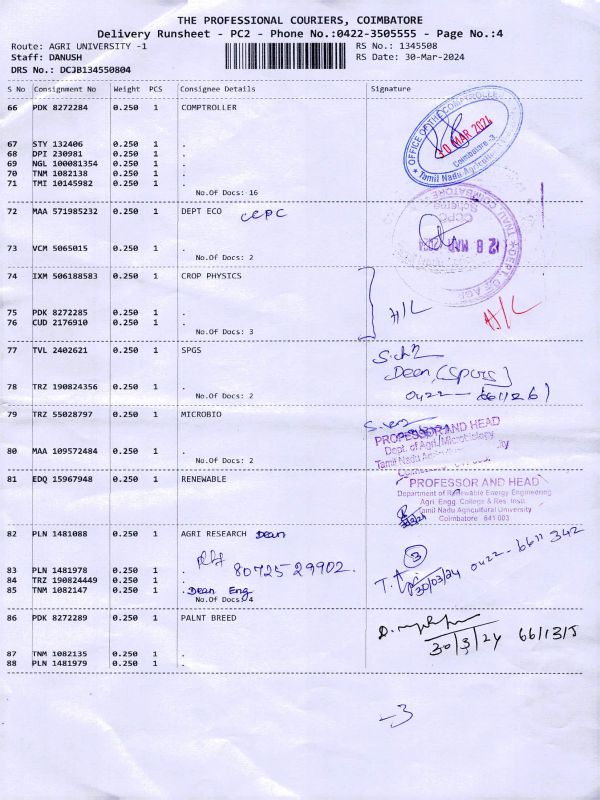 THE PROFESSIONAL COURIERS, COIMBATORE
Delivery Runsheet - PC2 - Phone No.:0422-3505555 - Page No.:4
Route: AGRI UNIVERSITY -1
RS No.: 1345508
Staff: DANUSH
RS Date: 30-Mar-2024
DRS No.: DCJB134550804
S No Consignment No Weight PCS Consignee Details Signature
66 PDK 8272284 0.250 1 COMPTROLLER
OFFICE OF THE COMPTROLLER
MAR 2024
Coimbatore-3
Tamil Nadu
67 STY 132406 0.250 1 .
68 DPI 230981 0.250 1 .
69 NGL 100081354 0.250 1 .
70 TNM 1082138 0.250 1 .
71 TMI 10145982 0.250 1 .
No.Of Docs: 16
72 MAA 571985232 0.250 1 DEPT ECO CCPC
73 VCM 5065015 0.250 1 .
No.Of Docs: 2
74 IXM 506188583 0.250 1 CROP PHYSICS
75 PDK 8272285 0.250 1 .
H/L H/L
76 CUD 2176910 0.250 1 .
No.Of Docs: 3
77 TVL 2402621 0.250 1 SPGS
Dean, (SPGS)
78 TRZ 190824356 0.250 1 .
0422 - 6611261
No.Of Docs: 2
79 TRZ 55028797 0.250 1 MICROBIO
PROFESSOR AND HEAD
Dept. of Agrl. Microbiology
Tamil Nadu
80 MAA 109572484 0.250 1 .
No.Of Docs: 2
81 EDQ 15967948 0.250 1 RENEWABLE
PROFESSOR AND HEAD
Department of Renewable Energy Engineering
Agri. Engg. College & Res. Insti
Tamil Nadu Agricultural University
Coimbatore 641 003
82 PLN 1481088 0.250 1 AGRI RESEARCH Dean
3
0422 - 6611 342
83 PLN 1481978 0.250 1 . 80725 29902.
84 TRZ 190824449 0.250 1 .
30/03/24
85 TNM 1082147 0.250 1 . Dean Eng
No.Of Docs: 4
86 PDK 8272289 0.250 1 PALNT BREED
30/3/24
87 TNM 1082135 0.250 1 .
88 PLN 1481979 0.250 1 .